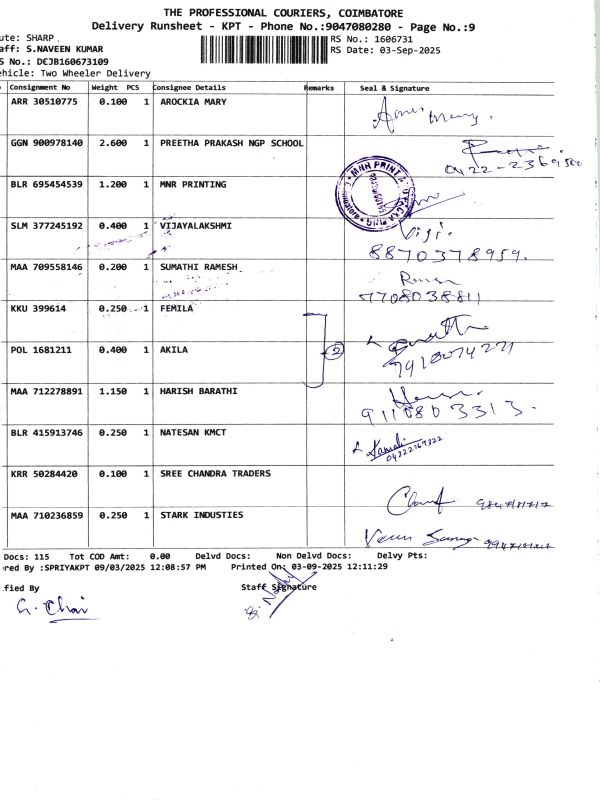 THE PROFESSIONAL COURIERS, COIMBATORE
Delivery Runsheet - KPT - Phone No.:9047080280 - Page No.:9
ute: SHARP
RS No.: 1606731
aff: S.NAVEEN KUMAR
RS Date: 03-Sep-2025
S No.: DCJB160673109
ehicle: Two Wheeler Delivery
Consignment No Weight PCS Consignee Details Remarks Seal & Signature
ARR 30510775 0.100 1 AROCKIA MARY
GGN 900978140 2.600 1 PREETHA PRAKASH NGP SCHOOL
0422-2369500
BLR 695454539 1.200 1 MNR PRINTING
MNR PRINT
SLM 377245192 0.400 1 VIJAYALAKSHMI Viji.
8870378959.
MAA 709558146 0.200 1 SUMATHI RAMESH
7708038811
KKU 399614 0.250 1 FEMILA
POL 1681211 0.400 1 AKILA 2
MAA 712278891 1.150 1 HARISH BARATHI
BLR 415913746 0.250 1 NATESAN KMCT
KRR 50284420 0.100 1 SREE CHANDRA TRADERS
MAA 710236859 0.250 1 STARK INDUSTIES
Docs: 115 Tot COD Amt: 0.00 Delvd Docs: Non Delvd Docs: Delvy Pts:
red By :SPRIYAKPT 09/03/2025 12:08:57 PM Printed On: 03-09-2025 12:11:29
fied By Staff Signature